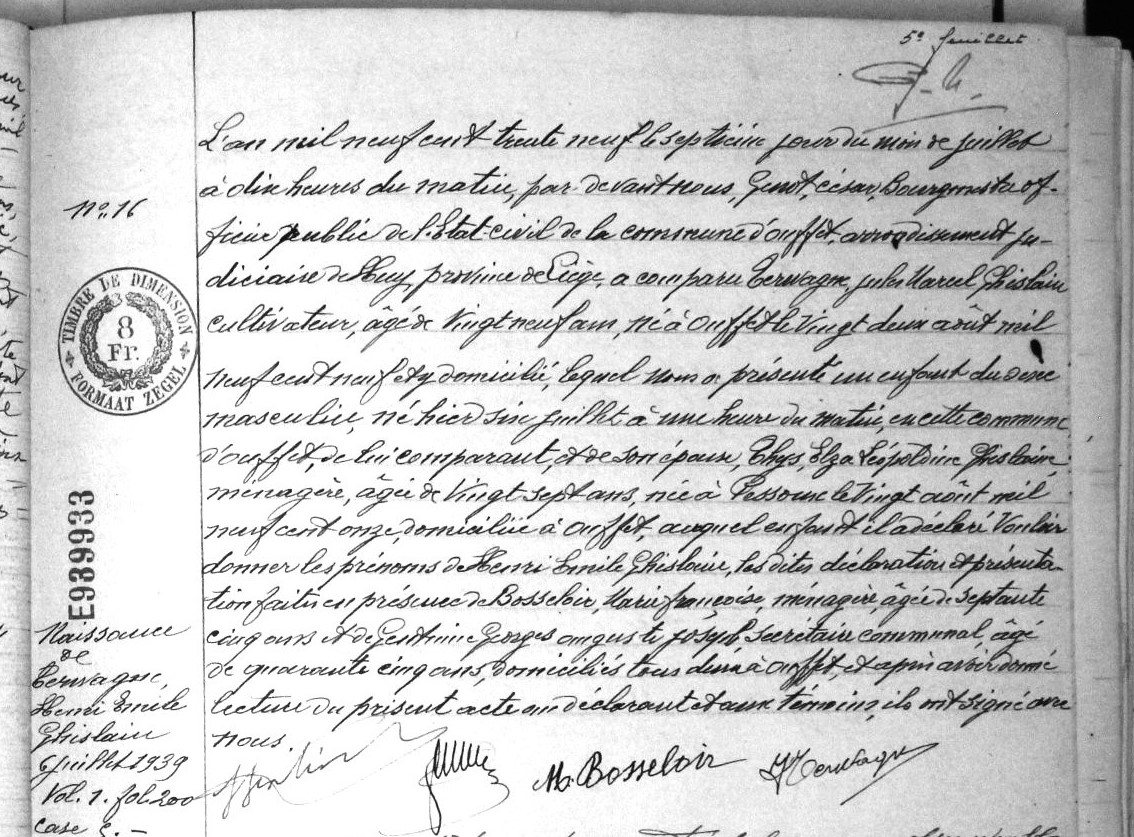 5e feuillet
L'an mil neuf cent trente neuf le septième jour du mois de juillet
à dix heures du matin, par devant nous, Genot, César, Bourgmestre of-
ficier public de l'Etat-civil de la commune d'Ouffet, arrondissement ju-
diciaire de Huy, province de Liège, a comparu Tervagne, Jules Marcel Ghislain
cultivateur, âgé de Vingt neuf ans, né à Ouffet le Vingt deux août mil
neuf cent neuf et y domicilié, lequel nous a présenté un enfant du sexe
masculin, né hier six juillet à une heure du matin, en cette commune
d'Ouffet, de lui comparant, et de son épouse, Thys, Elza Léopoldine Ghislaine
ménagère, âgée de Vingt sept ans, née à Pessoux le Vingt août mil
neuf cent onze, domiciliée à Ouffet, auquel enfant il a déclaré Vouloir
donner les prénoms de Henri Emile Ghislain, les dites déclaration et présenta-
tion faites en présence de Bosseloir, Marie françoise, ménagère, âgée de septante
cinq ans et de Georges auguste joseph secrétaire communal, âgé
de quarante cinq ans, domiciliés tous deux à Ouffet, et après avoir donné
lecture du présent acte au déclarant et aux témoins, ils ont signé avec
nous.
M. Bosseloir
J Tervagne
No 16
TIMBRE DE DIMENSION
8
Fr.
FORMAAT ZEGEL
E939933
Naissance
de
Tervagne,
Henri Emile
Ghislain
6 juillet 1939
Vol. 1. fol. 200
case 5.-